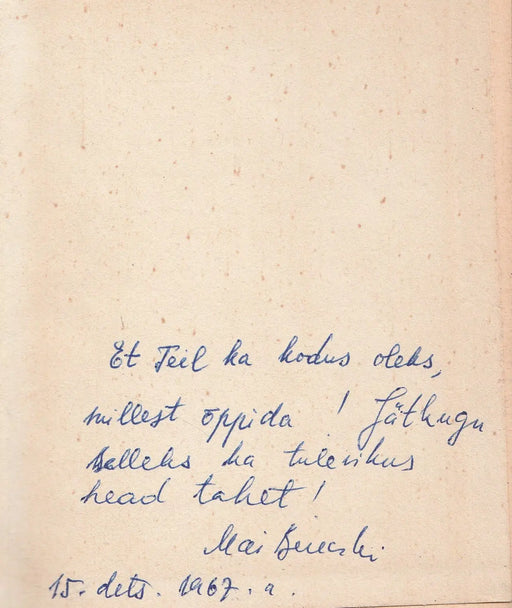 Et Teil ka kodus oleks,
millest õppida ! Jätkugu
selleks ka tulevikus
head tahet !
Mai
15. dets. 1967. a.